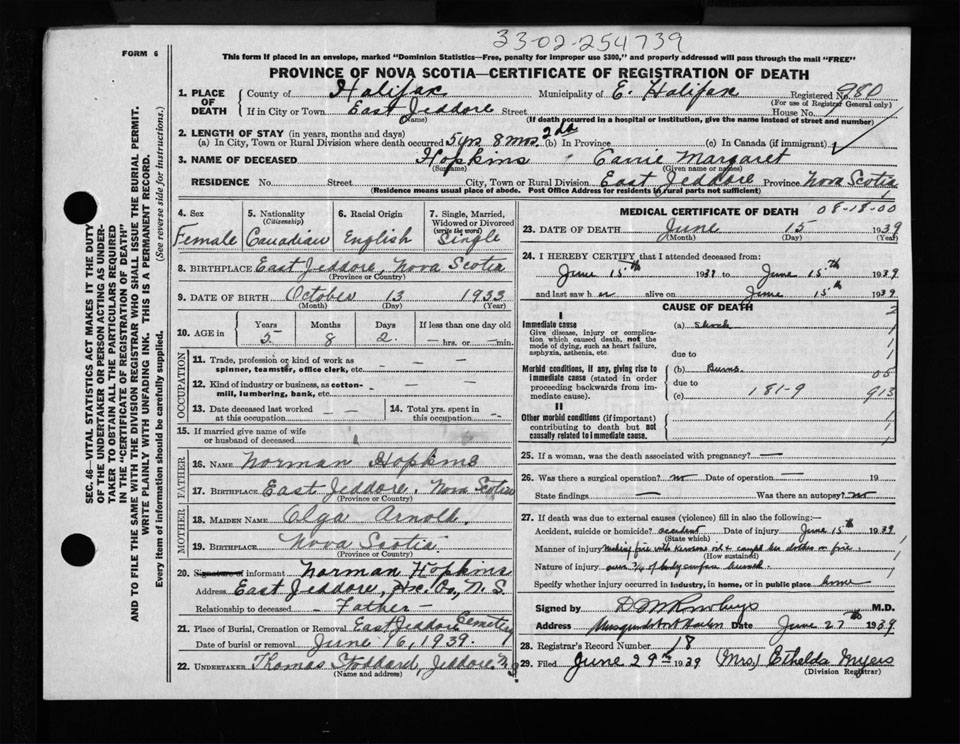 33-02-254739
FORM 6
This form if placed in an envelope, marked "Dominion Statistics—Free, penalty for improper use $300," and properly addressed will pass through the mail "FREE"
PROVINCE OF NOVA SCOTIA—CERTIFICATE OF REGISTRATION OF DEATH
1. PLACE OF DEATH
County of Halifax Municipality of E. Halifax Registered No. 980
(For use of Registrar General only)
If in City or Town East Jeddore Street House No.
(Name) (If death occurred in a hospital or institution, give the name instead of street and number)
2. LENGTH OF STAY (in years, months and days)
(a) In City, Town or Rural Division where death occurred 5 yrs 8 mos 2 ds (b) In Province (c) In Canada (if immigrant)
3. NAME OF DECEASED Hopkins Carrie Margaret
(Surname) (Given name or names)
RESIDENCE No. Street City, Town or Rural Division East Jeddore Province Nova Scotia
(Residence means usual place of abode. Post Office Address for residents in rural parts not sufficient)
4. Sex Female
5. Nationality (Citizenship) Canadian
6. Racial Origin English
7. Single, Married, Widowed or Divorced (write the word) Single
8. BIRTHPLACE East Jeddore, Nova Scotia
(Province or Country)
9. DATE OF BIRTH October 13 1933
(Month) (Day) (Year)
10. AGE in Years 5 Months 8 Days 2 If less than one day old — hrs. or — min.
OCCUPATION
11. Trade, profession or kind of work as spinner, teamster, office clerk, etc. — —
12. Kind of industry or business, as cotton-mill, lumbering, bank, etc. — — —
13. Date deceased last worked at this occupation — —
14. Total yrs. spent in this occupation —
15. If married give name of wife or husband of deceased
FATHER
16. NAME Norman Hopkins
17. BIRTHPLACE East Jeddore, Nova Scotia
(Province or Country)
MOTHER
18. MAIDEN NAME Olga Arnold.
19. BIRTHPLACE Nova Scotia
(Province or Country)
20. Signature of informant Norman Hopkins
Address East Jeddore, Hx. Co., N. S.
Relationship to deceased — Father —
21. Place of Burial, Cremation or Removal East Jeddore Cemetery
Date of burial or removal June 16, 1939.
22. UNDERTAKER Thomas Stoddard, Jeddore N.S.
(Name and address)
MEDICAL CERTIFICATE OF DEATH 08-18-00
23. DATE OF DEATH June 15 1939
(Month) (Day) (Year)
24. I HEREBY CERTIFY that I attended deceased from:
June 15th 1939 to June 15th 1939
and last saw her alive on June 15th 1939
CAUSE OF DEATH
I
Immediate cause
Give disease, injury or complication which caused death, not the mode of dying, such as heart failure, asphyxia, asthenia, etc.
(a) Shock
due to
Morbid conditions, if any, giving rise to immediate cause (stated in order proceeding backwards from immediate cause).
(b) Burns 05
due to
(c) 181-9 913
II
Other morbid conditions (if important) contributing to death but not causally related to immediate cause.
25. If a woman, was the death associated with pregnancy? —
26. Was there a surgical operation? no Date of operation — 19
State findings — Was there an autopsy? no
27. If death was due to external causes (violence) fill in also the following:—
Accident, suicide or homicide? accident Date of injury June 15th 1939
(State which)
Manner of injury making fire with kerosene oil & caught her clothes on fire.
(How sustained)
Nature of injury over 3/4 of body surface burned
Specify whether injury occurred in industry, in home, or in public place home
Signed by M.D.
Address Musquodoboit Harbor Date June 27th 1939
28. Registrar's Record Number 18
29. Filed June 29th 1939 (Mrs.) Ethelda Myers
(Division Registrar)
SEC. 46—VITAL STATISTICS ACT MAKES IT THE DUTY
OF THE UNDERTAKER OR PERSON ACTING AS UNDER-
TAKER TO OBTAIN ALL THE PARTICULARS REQUIRED
IN THE "CERTIFICATE OF REGISTRATION OF DEATH"
AND TO FILE THE SAME WITH THE DIVISION REGISTRAR WHO SHALL ISSUE THE BURIAL PERMIT.
WRITE PLAINLY WITH UNFADING INK. THIS IS A PERMANENT RECORD.
Every item of information should be carefully supplied. (See reverse side for instructions.)